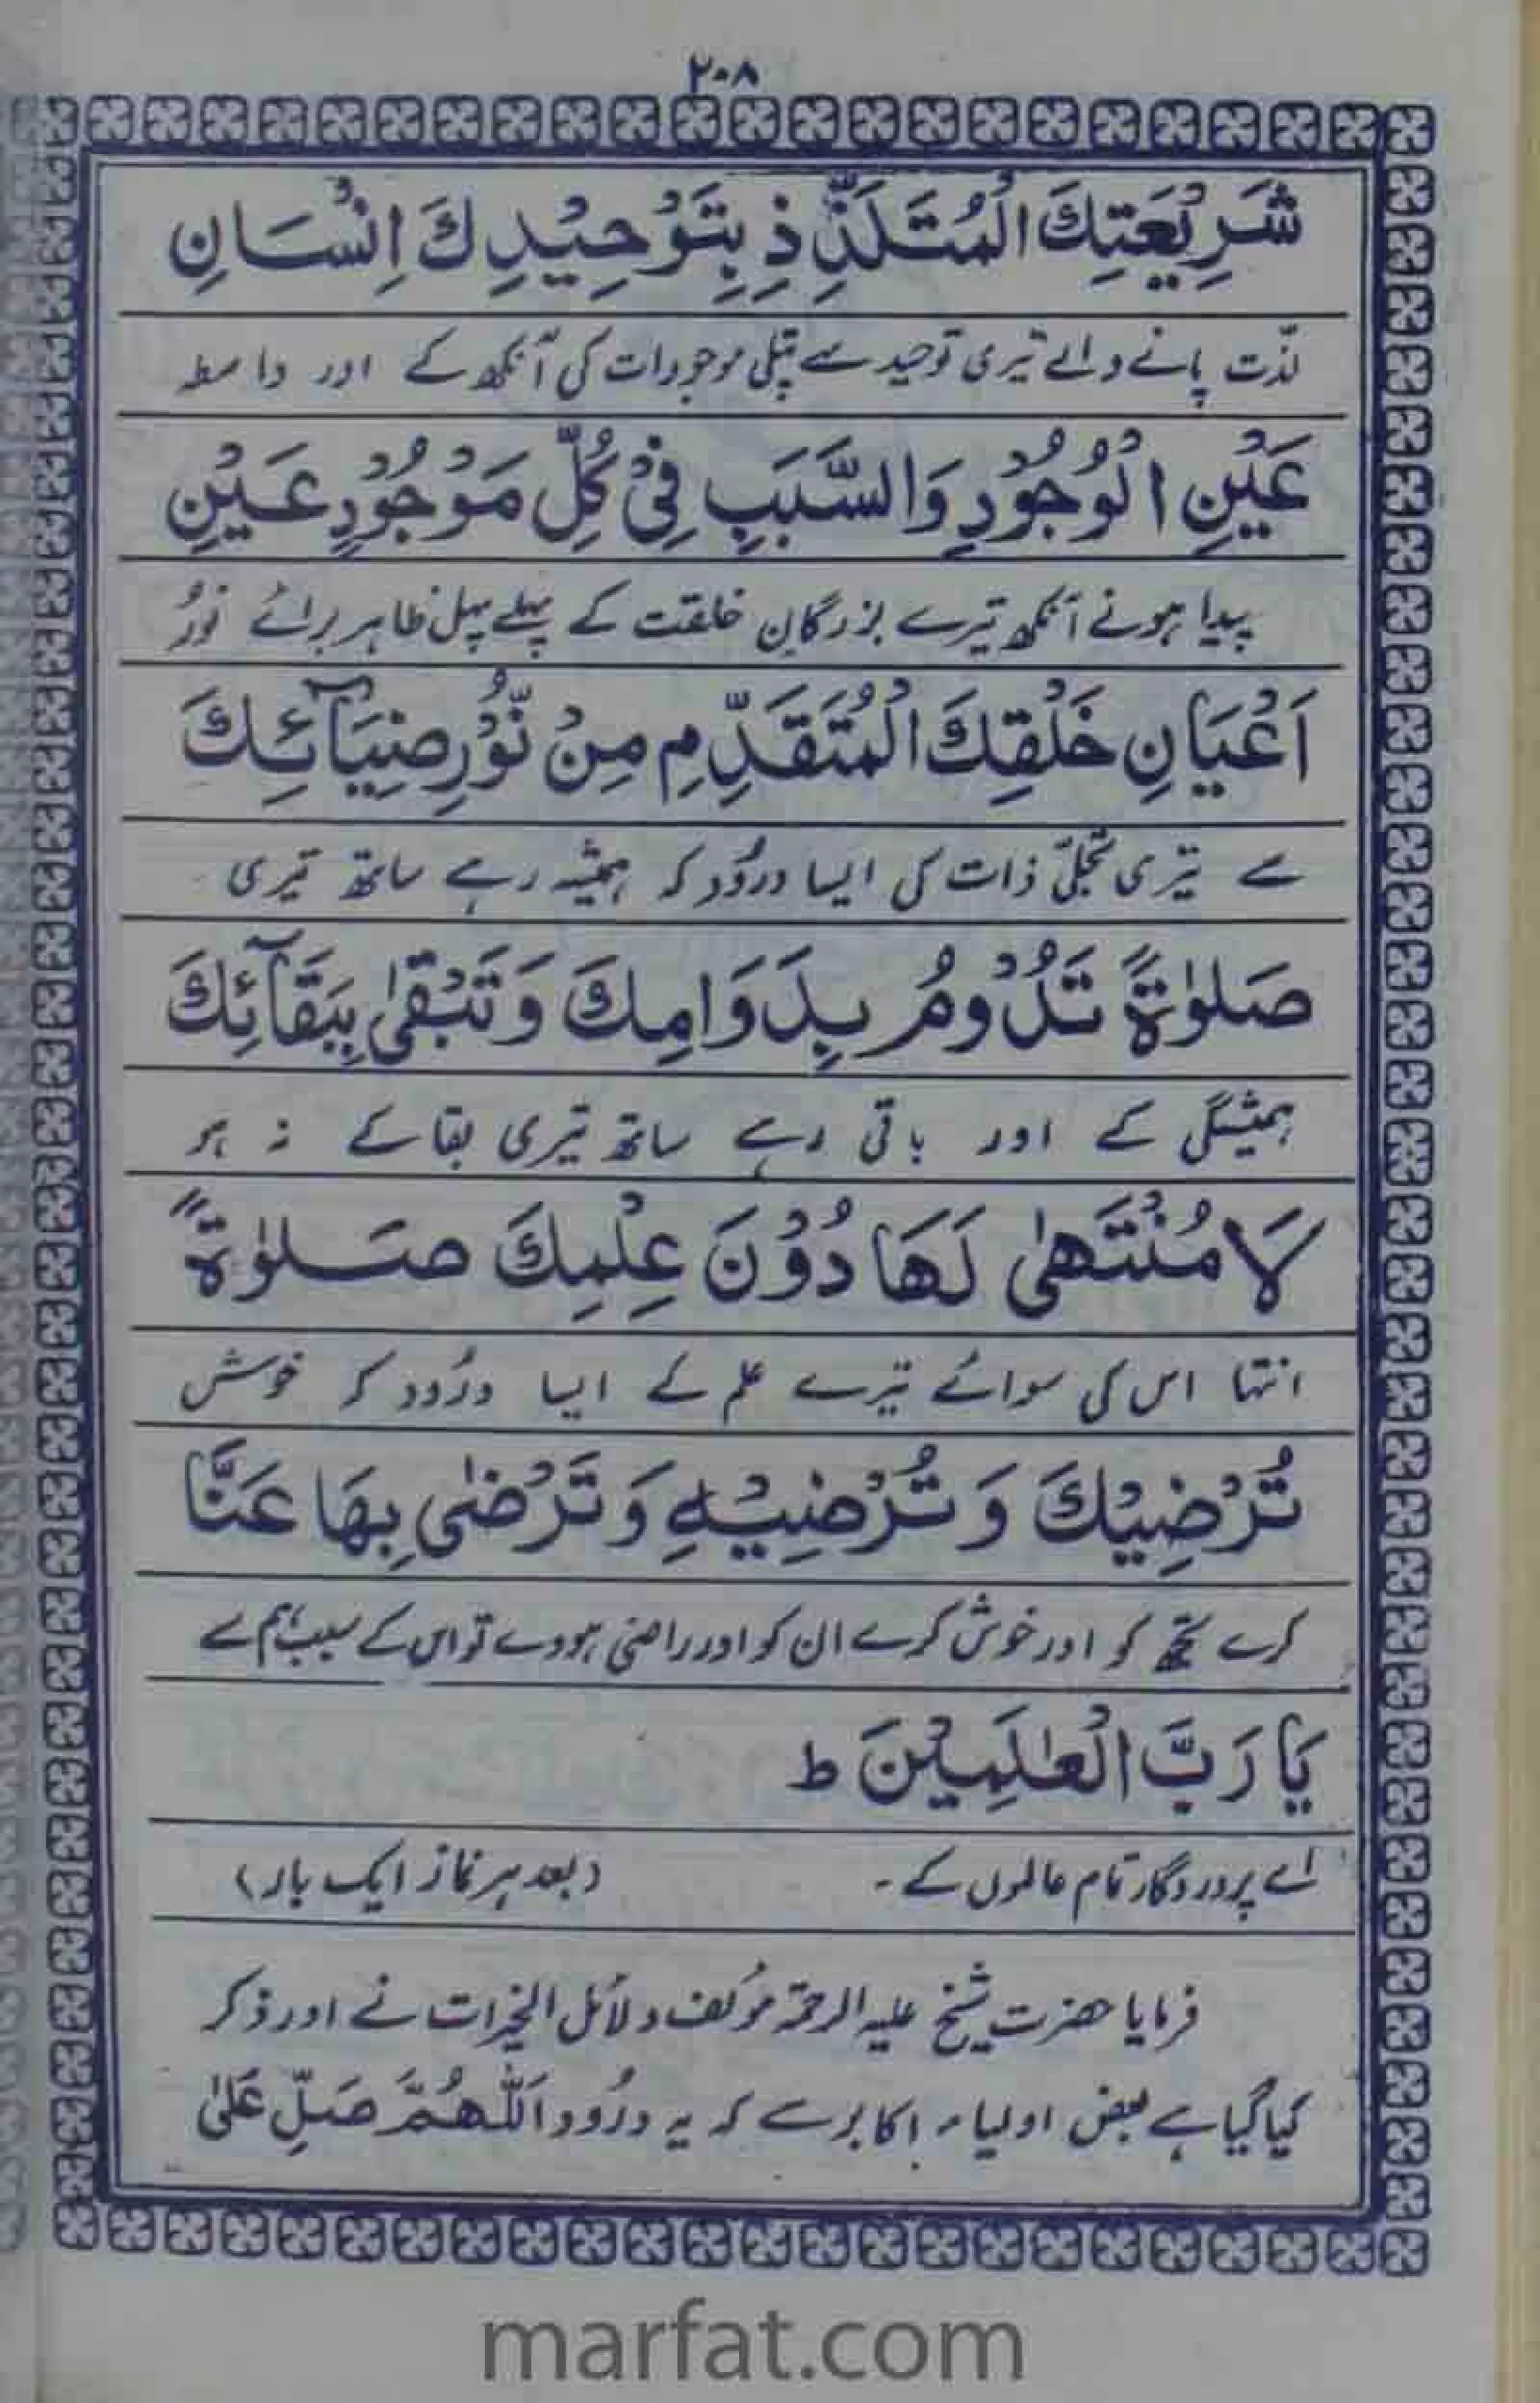 ۲۰۸
شَرِيْعَتِكَ الْمُتَلَذِّذِ بِتَوْحِيْدِكَ اِنْسَانِ
لذّت پانے والے تیری توحید سے پتلی موجودات کی آنکھ کے اور واسطہ
عَيْنِ الْوُجُوْدِ وَالسَّبَبِ فِيْ كُلِّ مَوْجُوْدٍ عَيْنِ
پیدا ہونے آنکھ تیرے بزرگان خلقت کے پہلے پہل ظاہر برائے نور
اَعْيَانِ خَلْقِكَ الْمُتَقَدِّمِ مِنْ نُّوْرِ ضِيَآئِكَ
سے تیری تجلّی ذات کی ایسا درُود کہ ہمیشہ رہے ساتھ تیری
صَلٰوةً تَدُوْمُ بِدَوَامِكَ وَتَبْقٰى بِبَقَآئِكَ
ہمیشگی کے اور باقی رہے ساتھ تیری بقا کے نہ ہو
لَا مُنْتَهٰى لَهَا دُوْنَ عِلْمِكَ صَلٰوةً
انتہا اس کی سوائے تیرے علم کے ایسا درُود کہ خوش
تُرْضِيْكَ وَتُرْضِيْهِ وَتَرْضٰى بِهَا عَنَّا
کرے تجھ کو اور خوش کرے ان کو اور راضی ہووے تو اس کے سبب ہم سے
يَا رَبَّ الْعٰلَمِيْنَ ط
اے پروردگار تمام عالموں کے ۔ (بعد ہر نماز ایک بار)
فرمایا حضرت شیخ علیہ الرحمۃ مؤلف دلائل الخیرات نے اور ذکر
کیا گیا ہے بعض اولیاء اکابر سے کہ یہ درُود اَللّٰهُمَّ صَلِّ عَلٰى
marfat.com